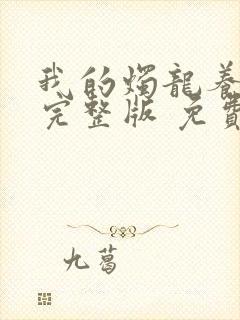 我的燭龍養
完整版 免費
九葛